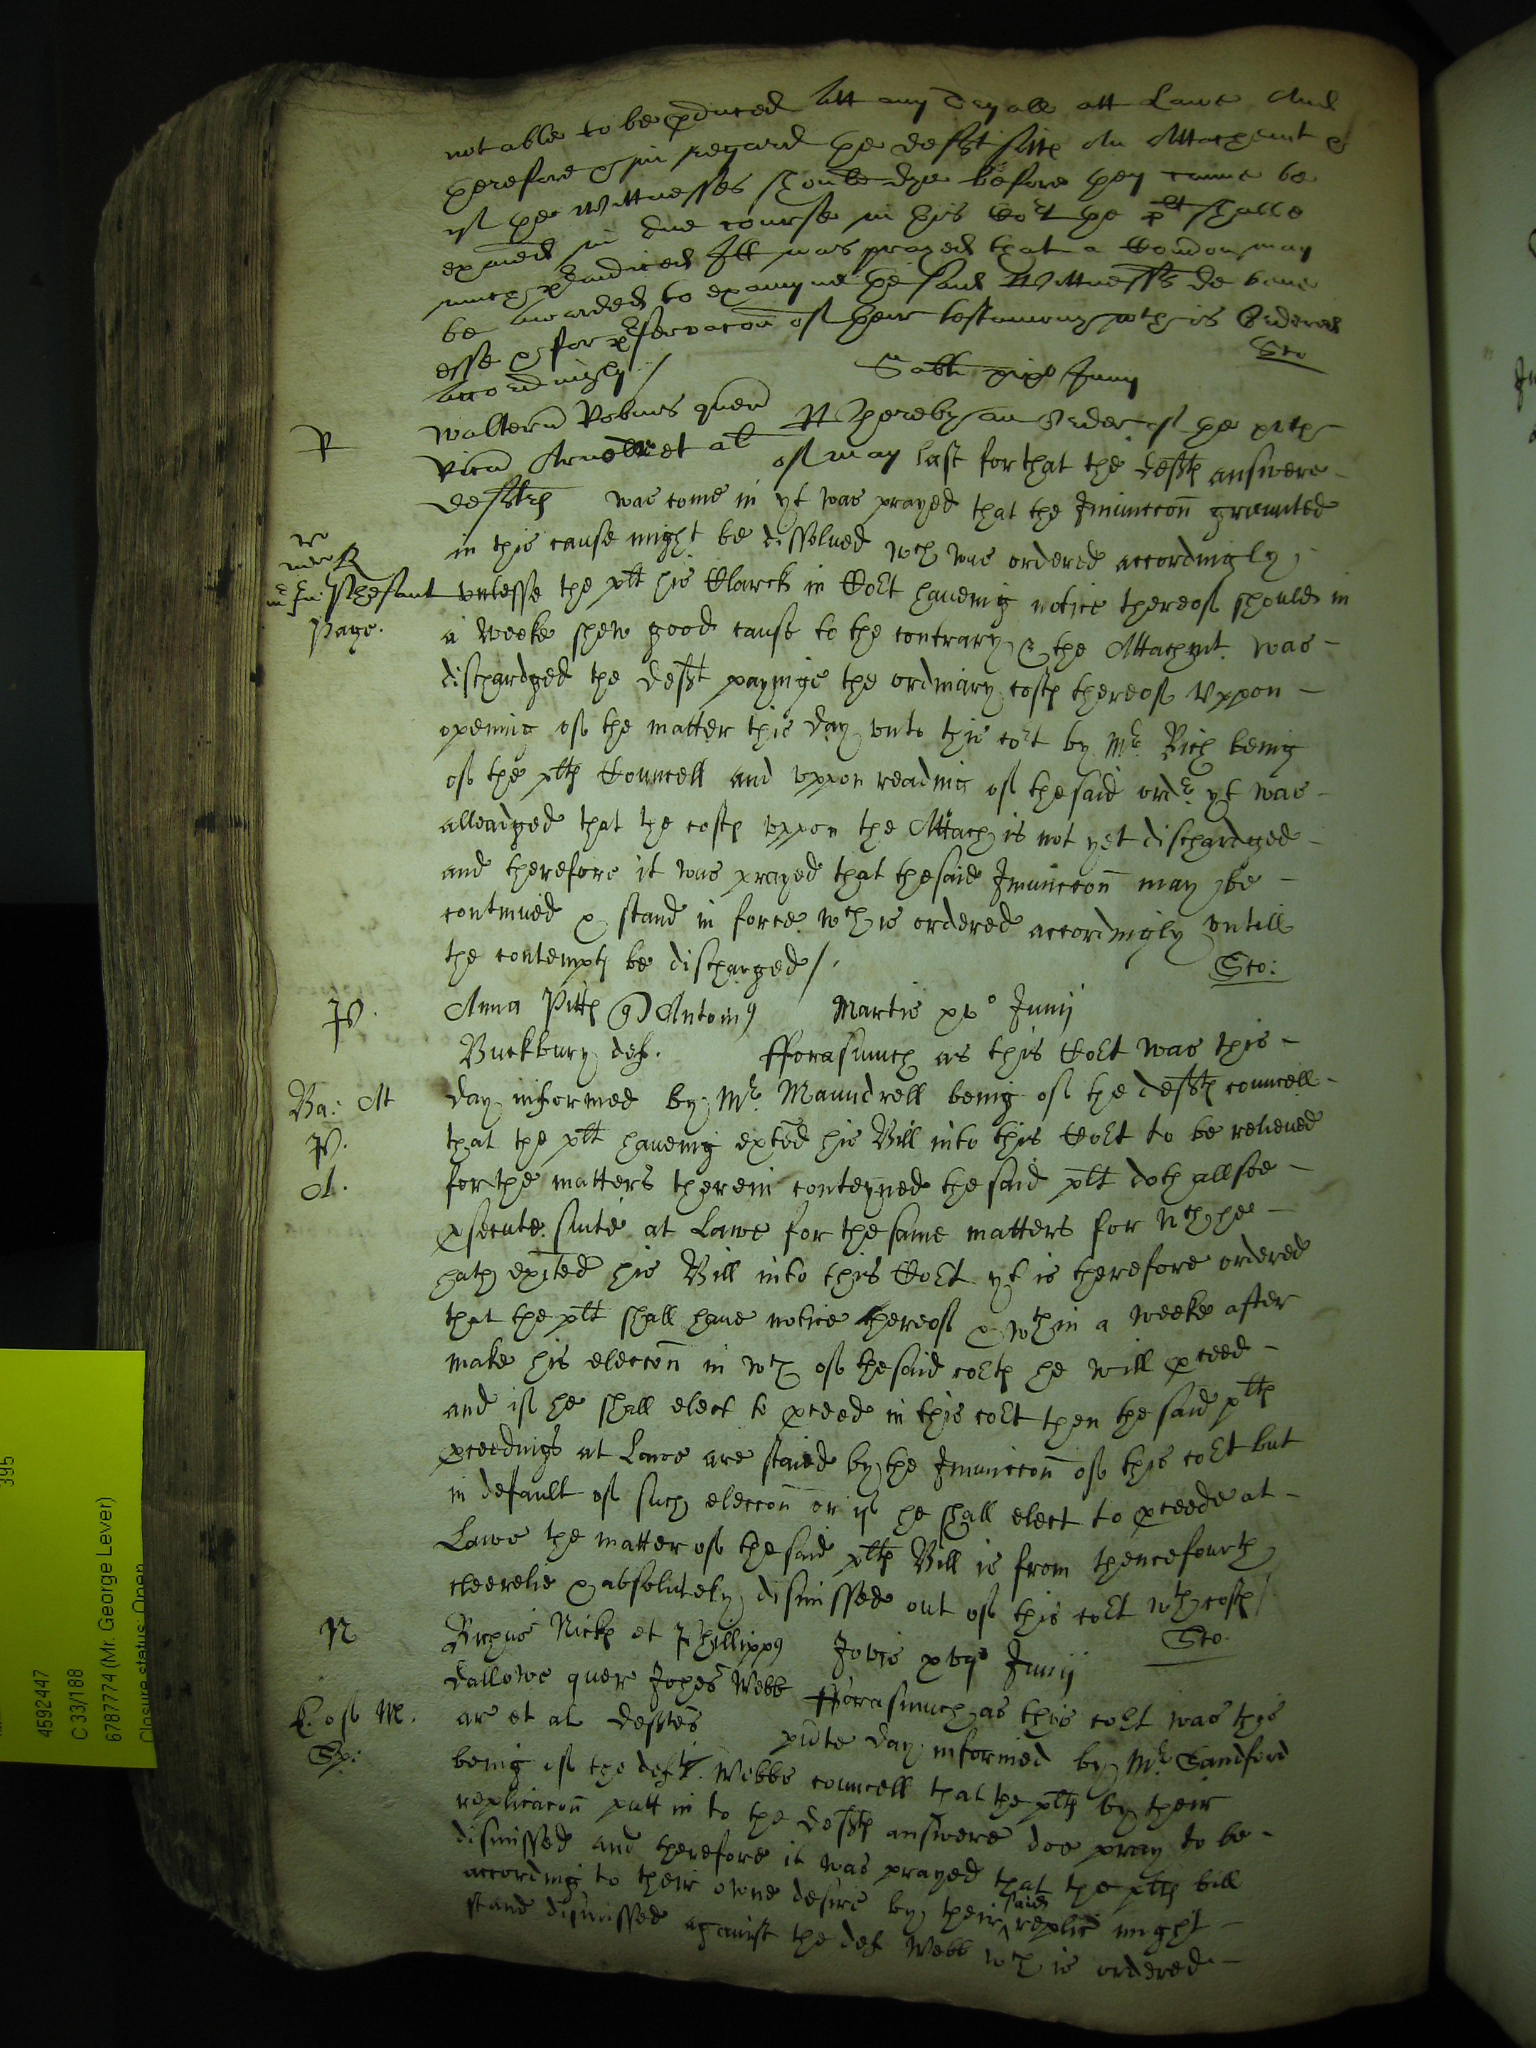 not able to be pduced att any tryall att Lawe And
therefore & in regard the defft sitts An Attachemt &
yf the Wittnesses should dye before they canne be
examed in due course in this Cort the plt shalbe
much preiudiced Itt was prayed that a Comicon may
be awarded to examyne the said Wittnesses de bene
esse & for pservacon of their testimony wch is Ordered
accordingly /
Sto
Sabti Junij
R
Walterus Robins quer
Whereby an Order of the
Vicu et al
of may last for that the defts answere
defftes was come in yt was prayed that the Iniunccon graunted
in this cause might be dissolued wch was ordered accordingly
vnlesse the plt his Clarck in Cort haueing notice thereof should in
Page.
a weeke shew good cause to the contrary & the Attachmt was
dischardged the defft payinge the ordinary costs thereof Vppon
opening of the matter this day vnto this cort by Mr Rich being
of the plts Councell and vppon reading of the said ordr yt was
alleadged that the costs vppon the Attach is not yet dischardged
and therefore it was prayed that the said Iniunccon may be
continued & stand in force wch is ordered accordingly vntill
the contempts be discharged /.
Sto:
P.
Anna Pitts Antoniu
Martis xvo Junij
Buckbury def.
fforasmuch as this Cort was this
Ba: At
day informed by Mr. Maundrell being of the deffts councell
P.
that the plt haueing exited his Bill into this Cort to be relieued
A.
for the matters therein conteyned the said plt doth allsoe
psecute suite at Lawe for the same matters for wch he
hath exited his Bill into this Cort yt is therefore ordered
that the plt shall haue notice thereof & wthin a weeke after
make his eleccon in wch of the said corts he will pceed
and if he shall elect to pceed in this cort then the said plts
pceedings at Lawe are staied by the Iniunccon of this cort but
in default of such eleccon or yf he shall elect to pceede at
Lawe the matter of the said plts Bill is from thencefourth
cleerelie & absolutely dismissed out of this cort wth costs /
Sto.
N
Ricus Nicks et Phillippu
Jovis xvijo Junij
Dallowe quer Johes Webb
fforasmuch as this cort was this
k. of M.
ar et al defftes
pnte day informed by Mr Sandford
Sp:
being of the deft Webbs councell that the plts by their
replicacon putt in to the deffts answere doe pray to be
dismissed and therefore it was prayed that the plts bill
according to their owne desire by their said replic might
stand dismissed against the def Webb wch is ordered
395
4592447
C 33/188
6787774 (Mr. George Lever)
Closure status: Open